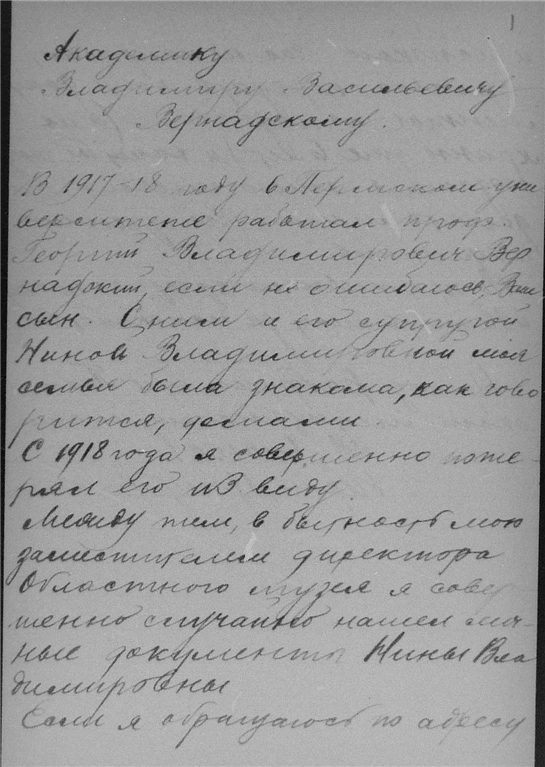 1
Академику
Владимиру Васильевичу
Вернадскому.
В 1917-18 году в Пермском уни
верситете работал проф.
Георгий Владимирович Вер
надский, если не ошибаюсь, Ваш
сын. С ним и его супругой
Ниной Владимировной моя
семья была знакома, как гово
рится, домами
С 1918 года я совершенно поте-
рял его из виду.
Между тем, в бытность мою
заместителем директора
Областного музея я совер-
шенно случайно нашел лич-
ные документы Нины Вла
димировны
Если я обращаюсь по адресу